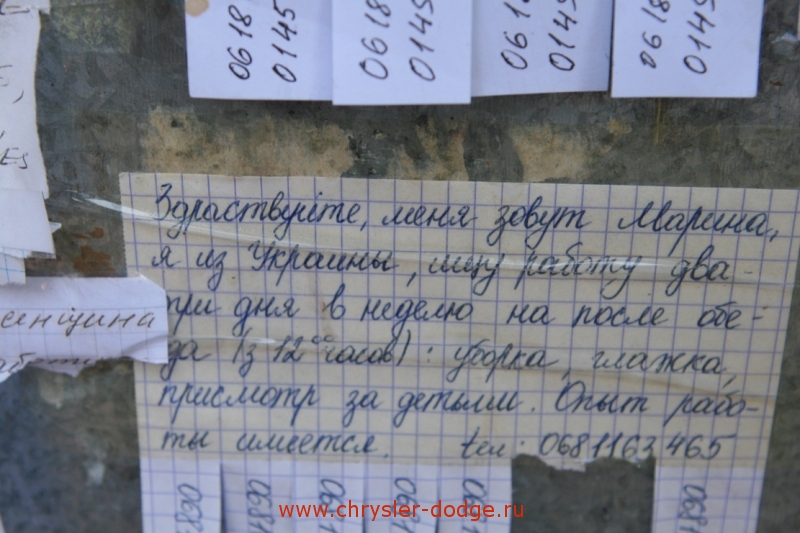 0618 0618 0618 0618
0145 0145 0145 0145
Es
Здраствуйте, меня зовут Марина,
я из Украины, ищу работу два-
три дня в неделю на после обе-
да (з 12°° часов): уборка, глажка,
присмотр за детьми. Опыт рабо-
ты имеется. тел: 0681163465
енщина
www.chrysler-dodge.ru